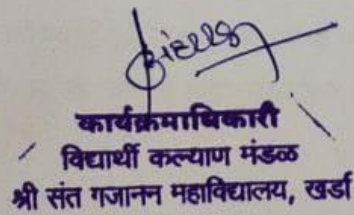 कार्यक्रमाधिकारी
विद्यार्थी कल्याण मंडळ
श्री संत गजानन महाविद्यालय, खर्डा